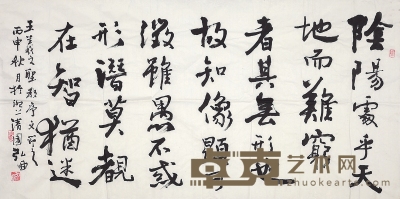 陰陽處乎天
地而難窮
者其無形也
故知像顯可
徵雖愚不惑
形潛莫覩
在智猶迷
王羲之聖教序文
丙申秋月於